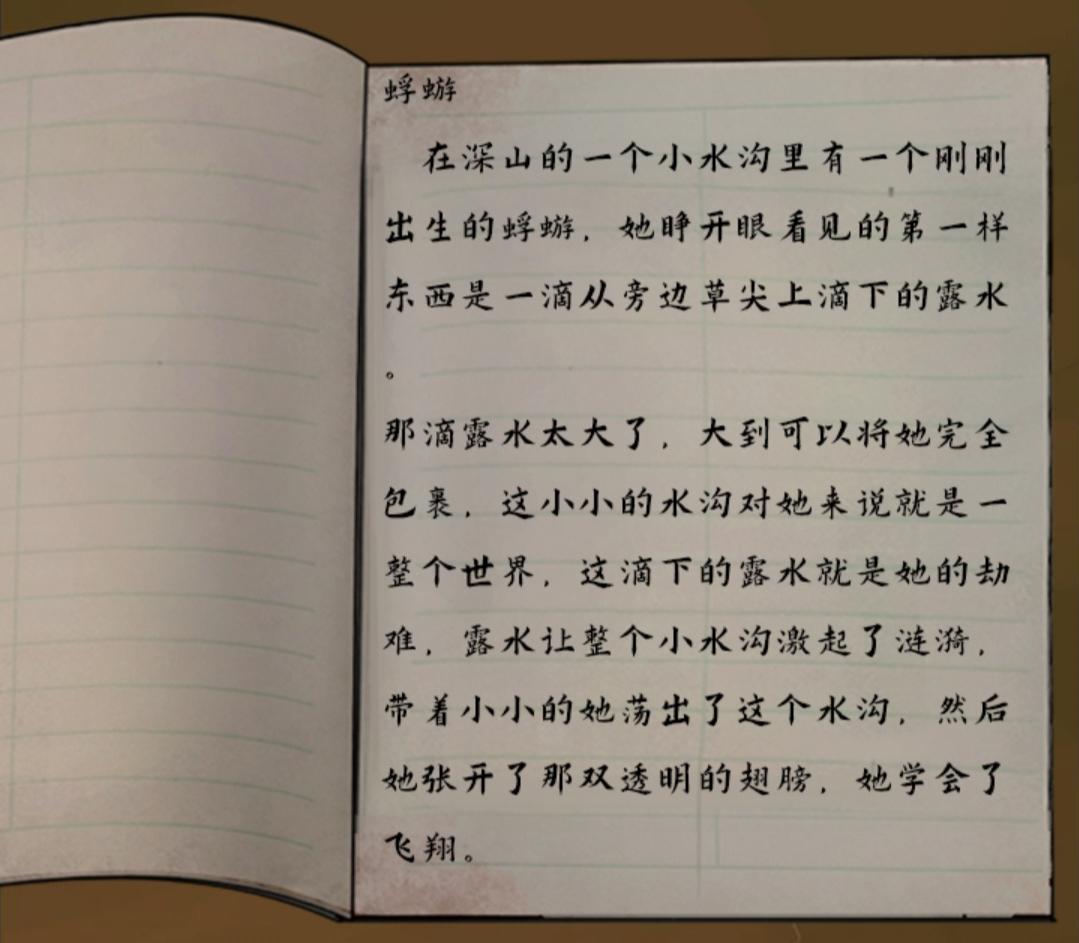 蜉蝣
在深山的一个小水沟里有一个刚刚
出生的蜉蝣，她睁开眼看见的第一样
东西是一滴从旁边草尖上滴下的露水
。
那滴露水太大了，大到可以将她完全
包裹，这小小的水沟对她来说就是一
整个世界，这滴下的露水就是她的劫
难，露水让整个小水沟激起了涟漪，
带着小小的她荡出了这个水沟，然后
她张开了那双透明的翅膀，她学会了
飞翔。